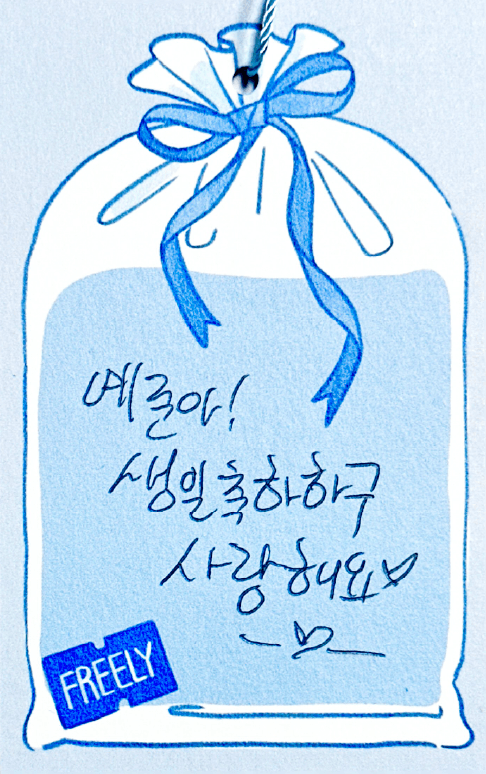 예준아!
생일축하하구
사랑해요♡
FREELY